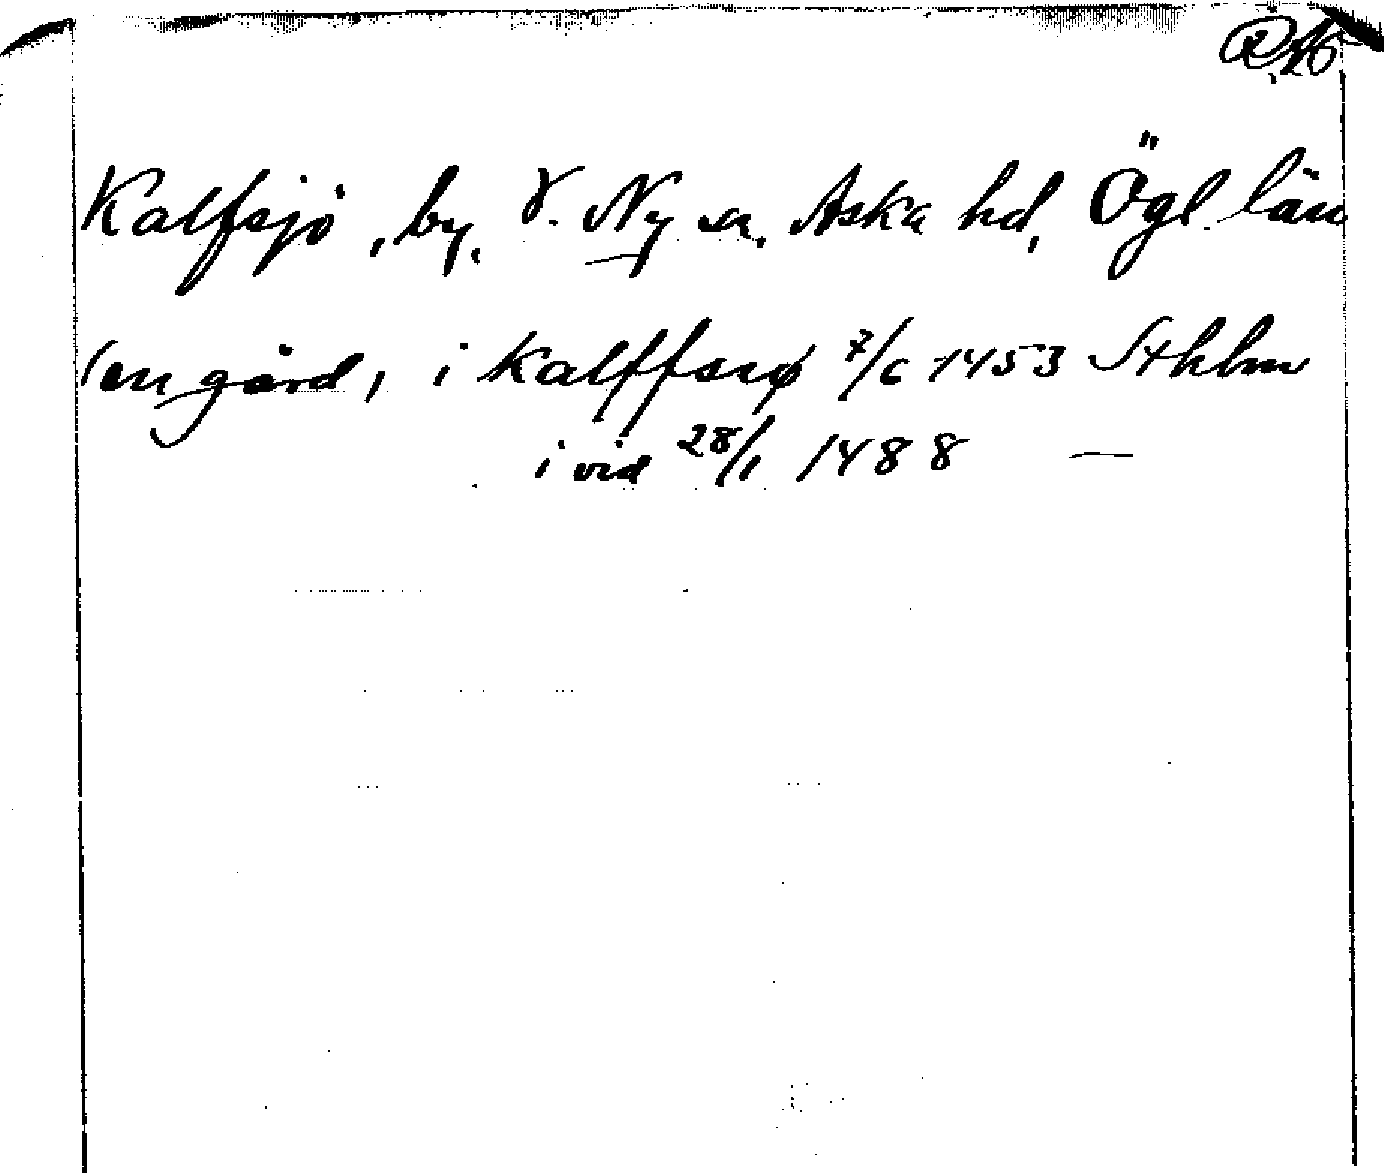 Kalfsjö, by, V. Ny sn, Aska hd, Ögl län
(en gård, i kalffsiø 7/6 1453 Sthlm
i vid 28/1 1488 —